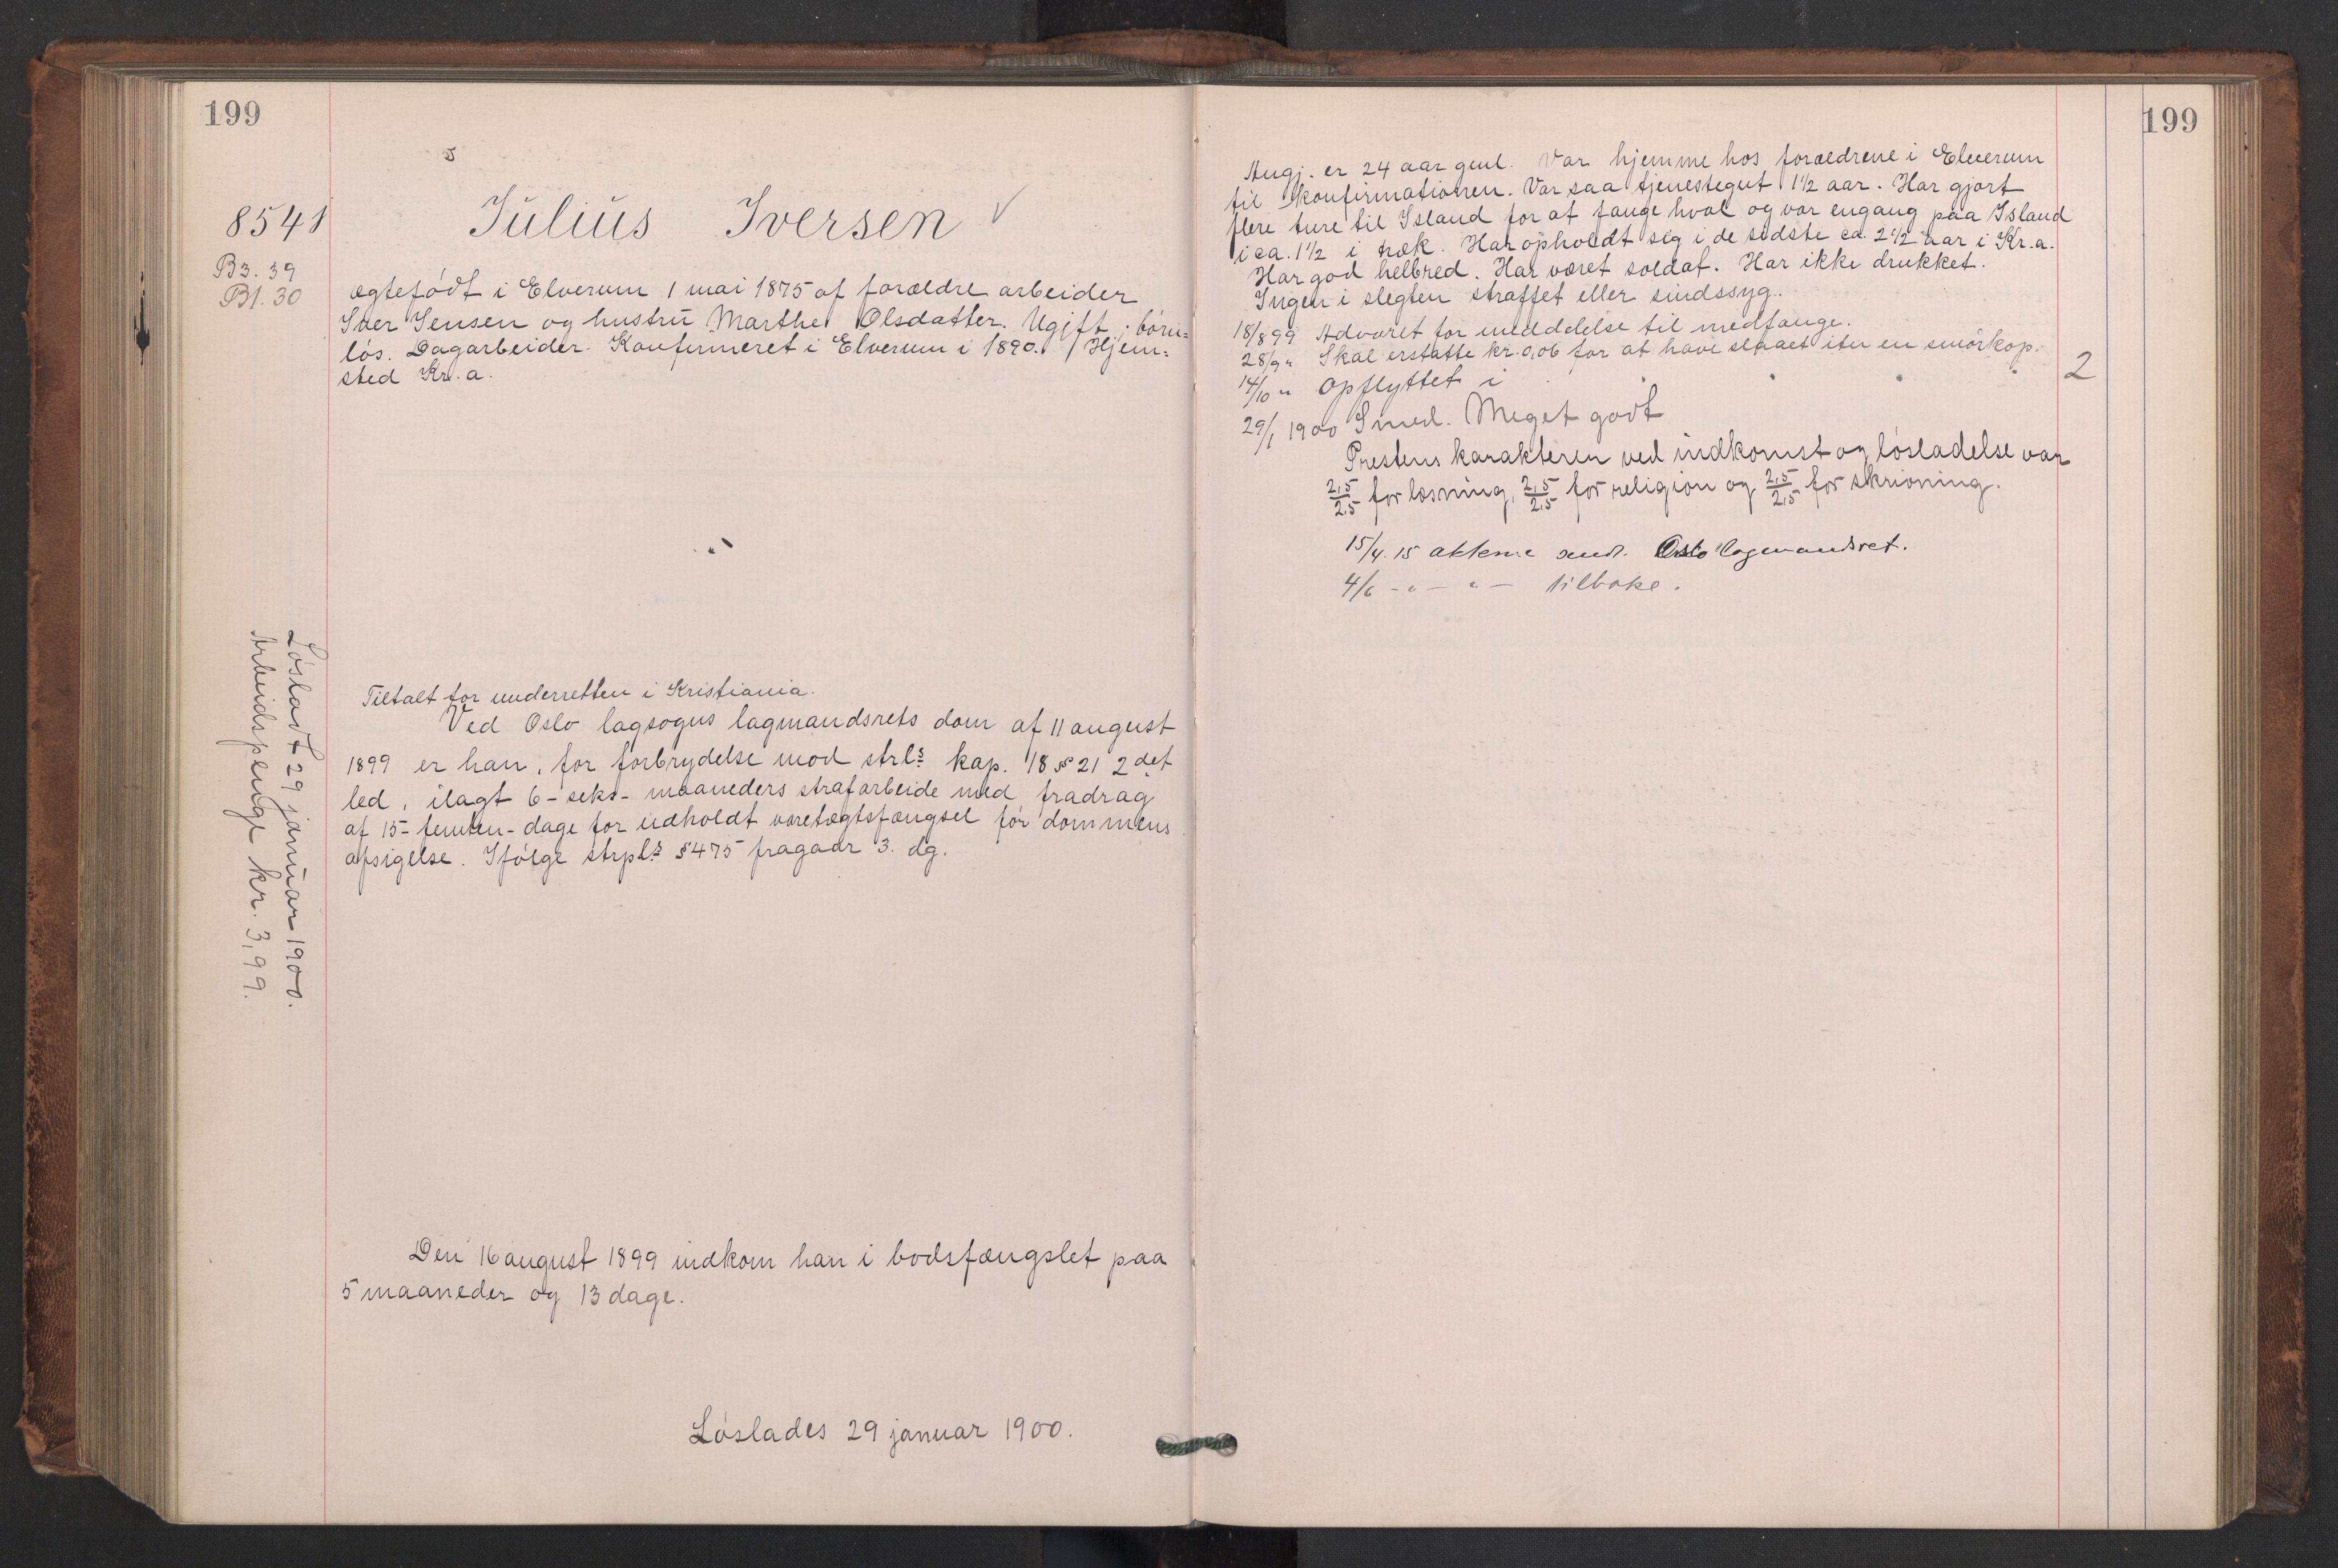 199
8541
B3. 39
Bl. 30
Julius Iversen √
ægtefødt i Elverum 1 mai 1875 af forældre arbeider
Iver Jensen og hustru Marthe Olsdatter. Ugift; børn=
løs. Dagarbeider. Konfirmeret i Elverum i 1890. Hjem=
sted Kr.a.
Løsladt 29 januar 1900.
Arbeidspenge kr. 3,99.
Tiltalt for underretten i Kristiania.
Ved Oslo lagsogns lagmandsrets dom af 11 august
1899 er han, for forbrydelse mod strls kap. 18 § 21 2det
led, ilagt 6-seks- maaneders strafarbeide med fradrag
af 15-femten-dage for udholdt varetægtsfængsel før dommens
afsigelse. Ifølge strpls § 475 fragaar 3. dg.
Den 16 august 1899 indkom han i bodsfængslet paa
5 maaneder og 13 dage.
Løslades 29 januar 1900.
199
Angj. er 24 aar gml. Var hjemme hos forældrene i Elverum
til konfirmationen. Var saa tjenestegut 1½ aar. Har gjort
flere ture til Island for at fange hval og var engang paa Island
i ca. 1½ i træk. Har opholdt sig i de sidste ca. 2½ aar i Kr.a.
Har god helbred. Har været soldat. Har ikke drukket.
Ingen i slegten straffet eller sindssyg.
18/8 99 Advaret for meddelelse til medfange.
28/9 " Skal erstatte kr. 0,06 for at have slaaet itu en smørkop.
14/10 " Opflyttet i 2
29/1 1900 Smed. Meget godt
Prestens karakterer ved indkomst og løsladelse var
2,5/2,5 for læsning, 2,5/2,5 for religion og 2,5/2,5 for skrivning.
15/4. 15 aktene sendt Oslo lagmandsret.
4/6 - " - " - tilbake.